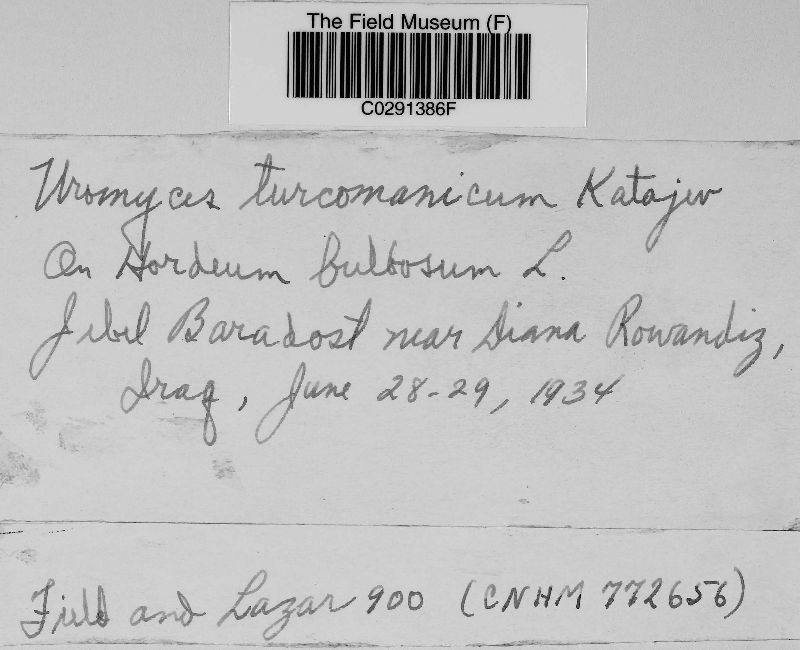 The Field Museum (F)
C0291386F
Uromyces turcomanicum Katajev
On Hordeum bulbosum L.
Jebel Baradost near Diana Rowandiz,
Iraq, June 28-29, 1934
Field and Lazar 900 (CNHM 772656)